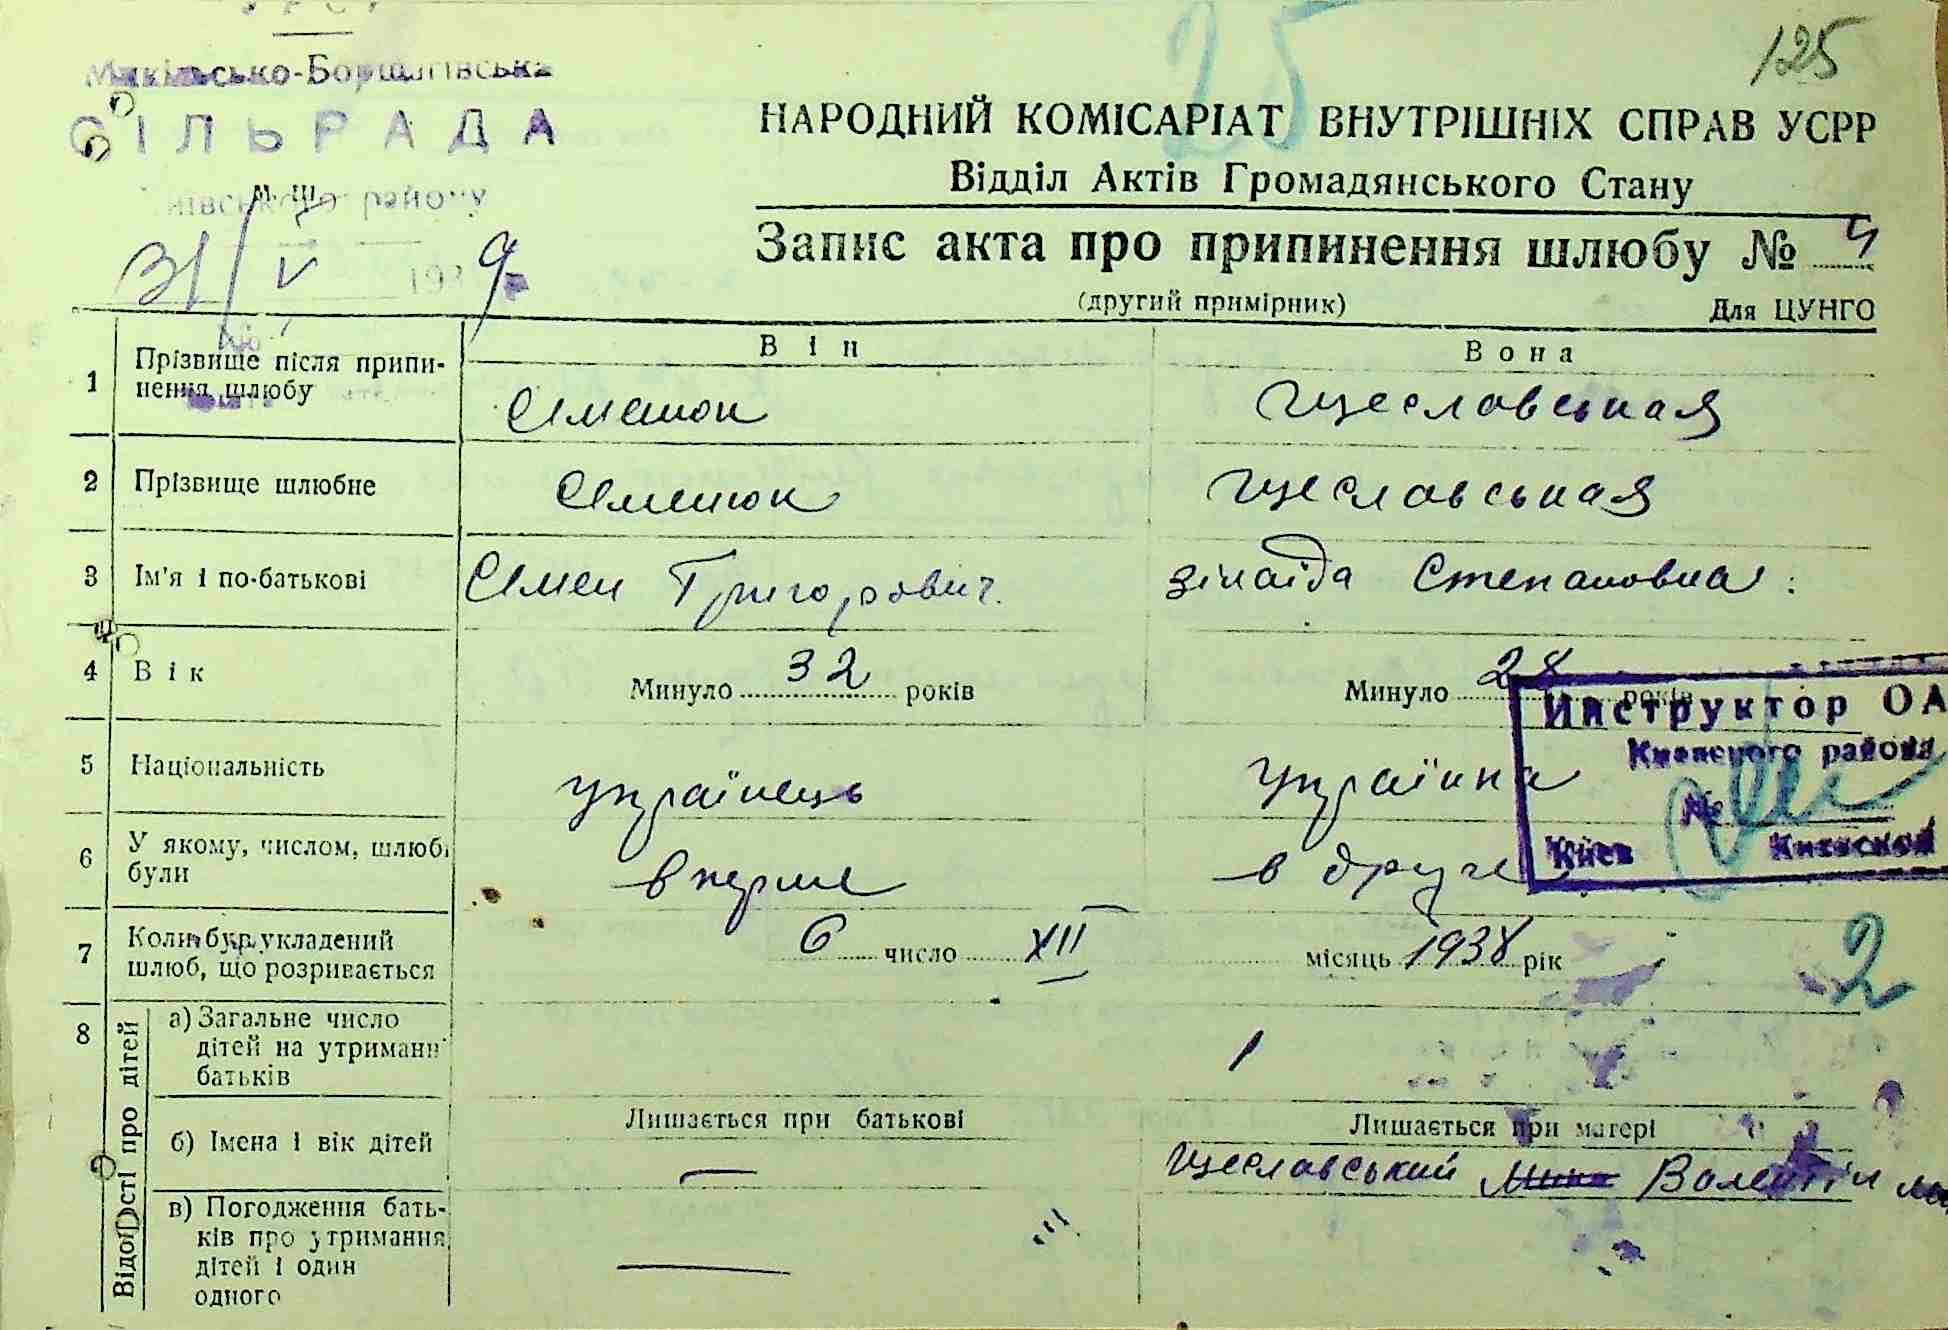 УРСР
125
25
Микільсько-Борщагівська
СІЛЬРАДА
району
31/V 1939
НАРОДНИЙ КОМІСАРІАТ ВНУТРІШНІХ СПРАВ УСРР
Відділ Актів Громадянського Стану
Запис акта про припинення шлюбу № 4
(другий примірник) Для ЦУНГО
Він Вона
1 Прізвище після припи-
нення шлюбу
Семенюк Щесловськая
2 Прізвище шлюбне Семенюк Щесловськая
3 Ім'я і по-батькові Семен Григорович. Зінаіда Степановна
4 Вік Минуло 32 років Минуло 28 років
Инструктор ОА
Киевского района
№
Киев Киевской
5 Національність українець українка
6 У якому, числом, шлюбі
були
вперше в друге
7 Коли був укладений
шлюб, що розривається
6 число XII місяць 1938 рік
2
8 Відомості про дітей
а) Загальне число
дітей на утриманні
батьків
1
б) Імена і вік дітей
Лишається при батькові Лишається при матері
— Щесловський Валентін
в) Погодження бать-
ків про утримання
дітей і один
одного
—